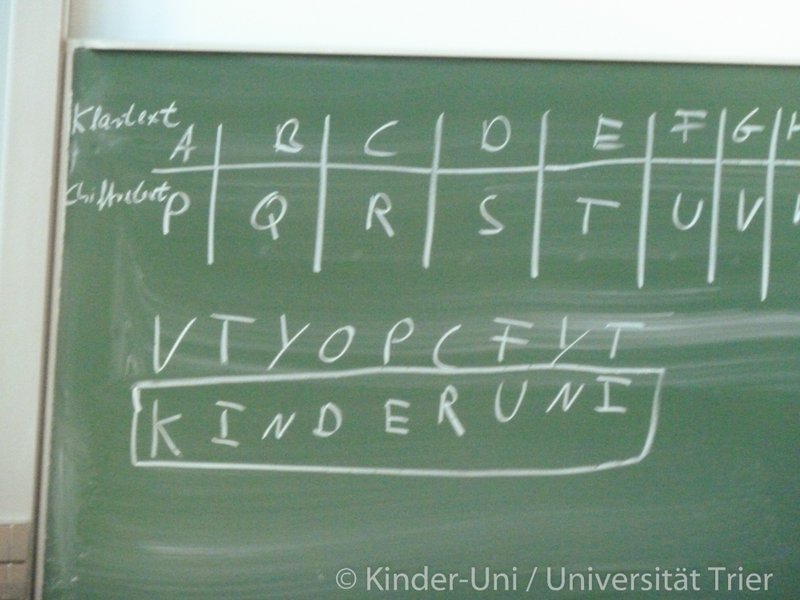 Klartext A B C D E F G H
Chiffretext P Q R S T U V
V T Y O P C F Y T
K I N D E R U N I
© Kinder-Uni / Universität Trier